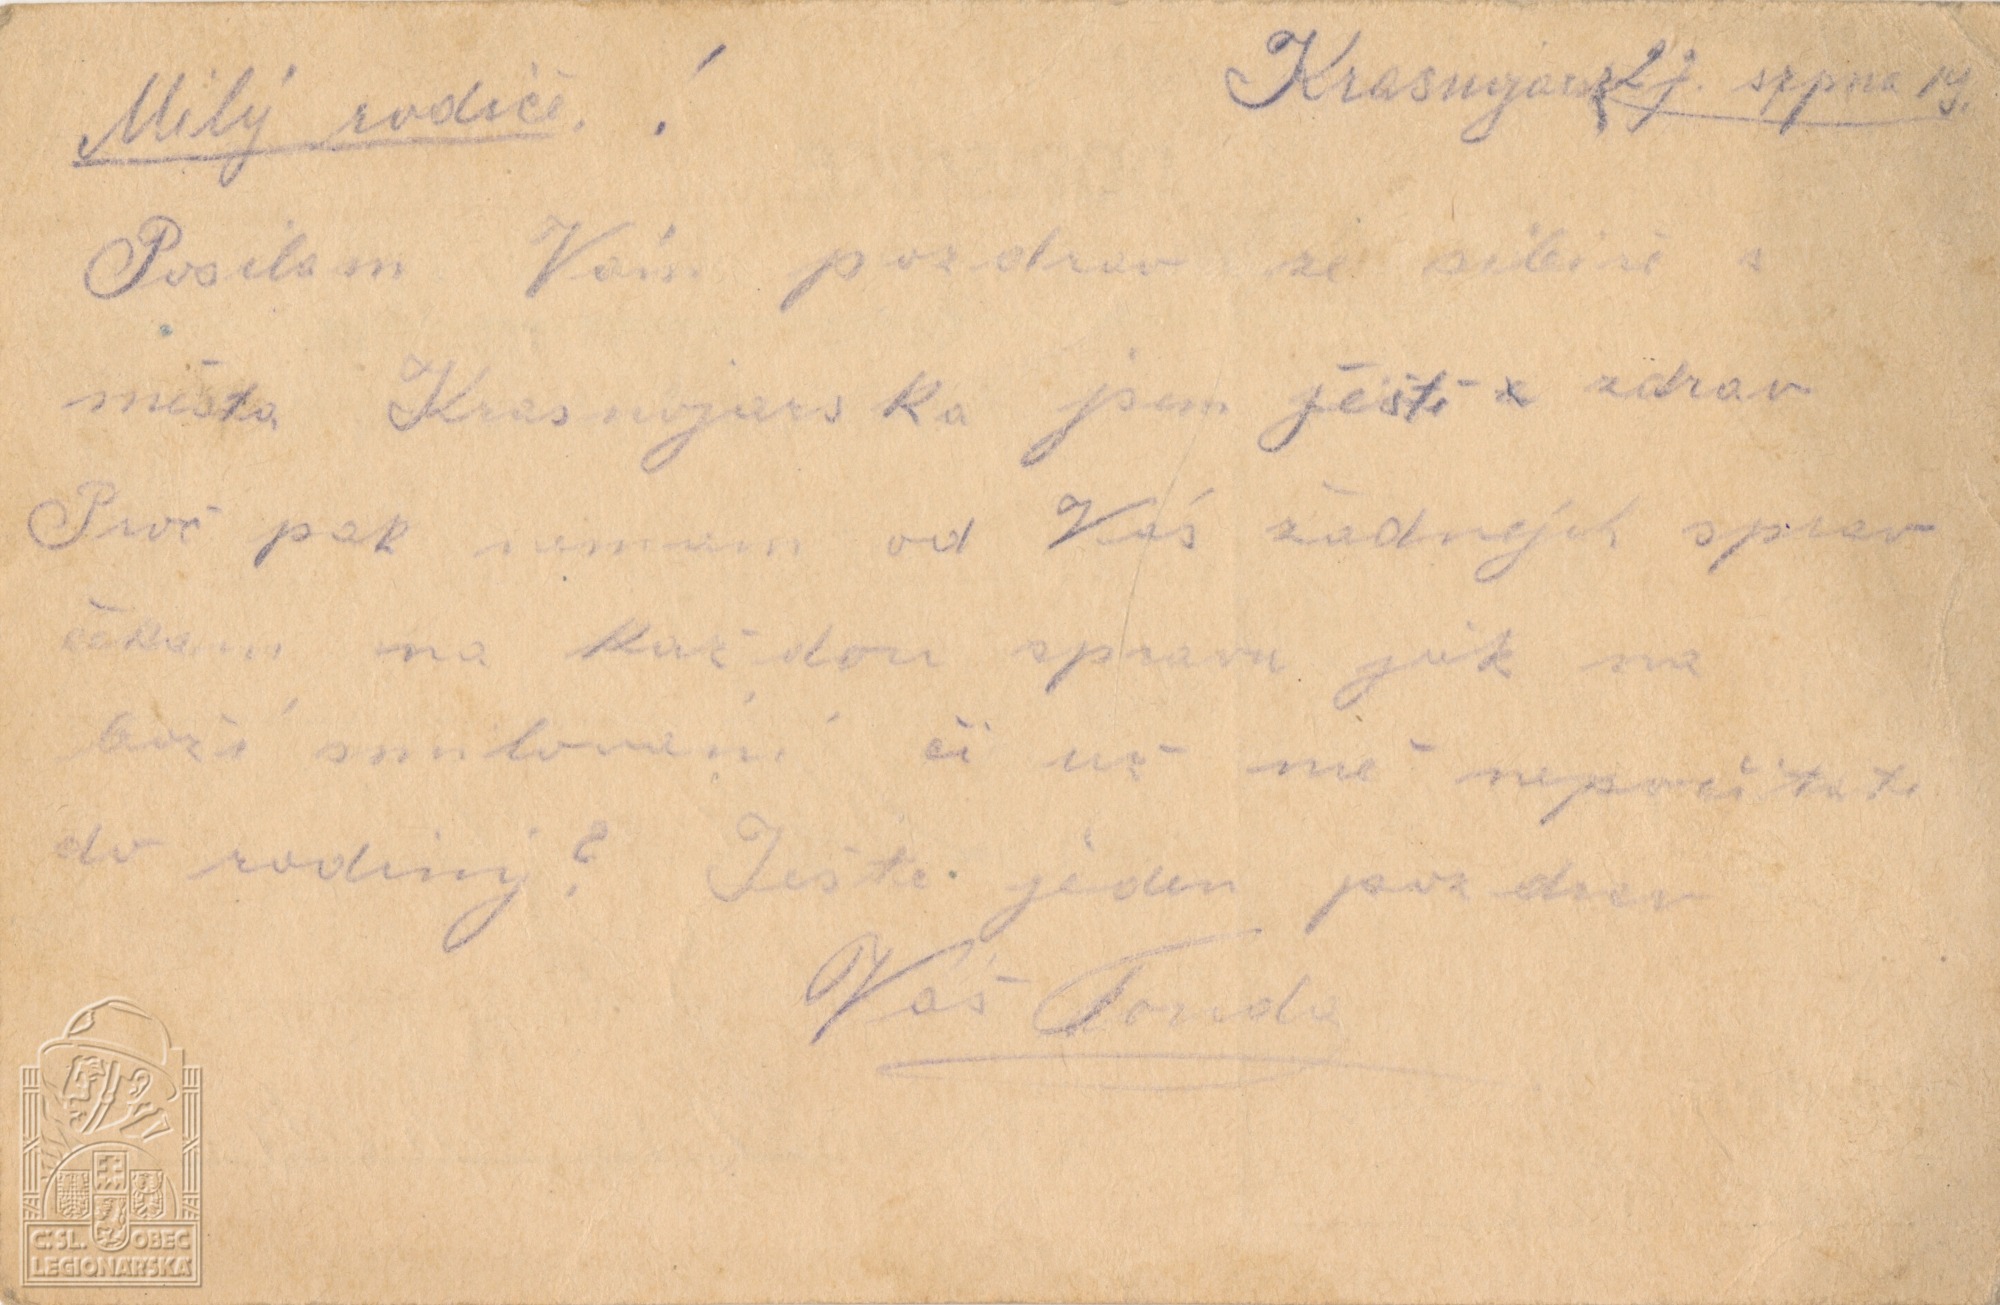 Milý rodiče. !
Krasnojarsk 27. srpna 19.
Posilam Vám pozdrav ze sibiře z
města Krasnojarska jsem ještě zdrav
Proč pak nemam od Vás žádnejch sprav
čekam na každou spravu jak na
boží smilování či už mě nepočitate
do rodiny? Ještě jeden pozdrav
Váš Tonda
Č.SL. OBEC
LEGIONÁŘSKÁ